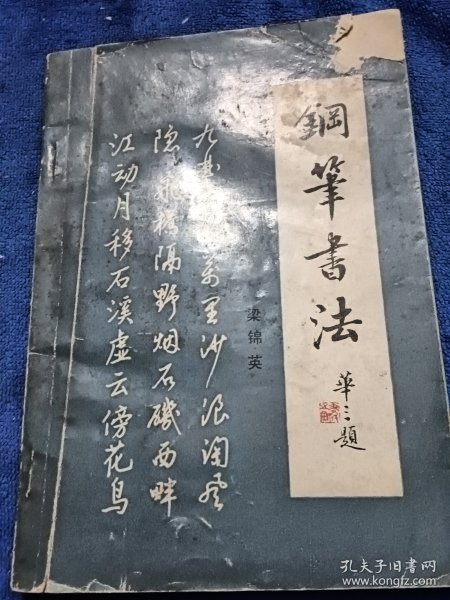 鋼筆書法
華三題
梁锦英
九曲 萬里沙浪淘风
隐 飛桥隔野烟石磯西畔
江动月移石溪虚云傍花鸟
孔夫子旧书网
www.kongfz.com